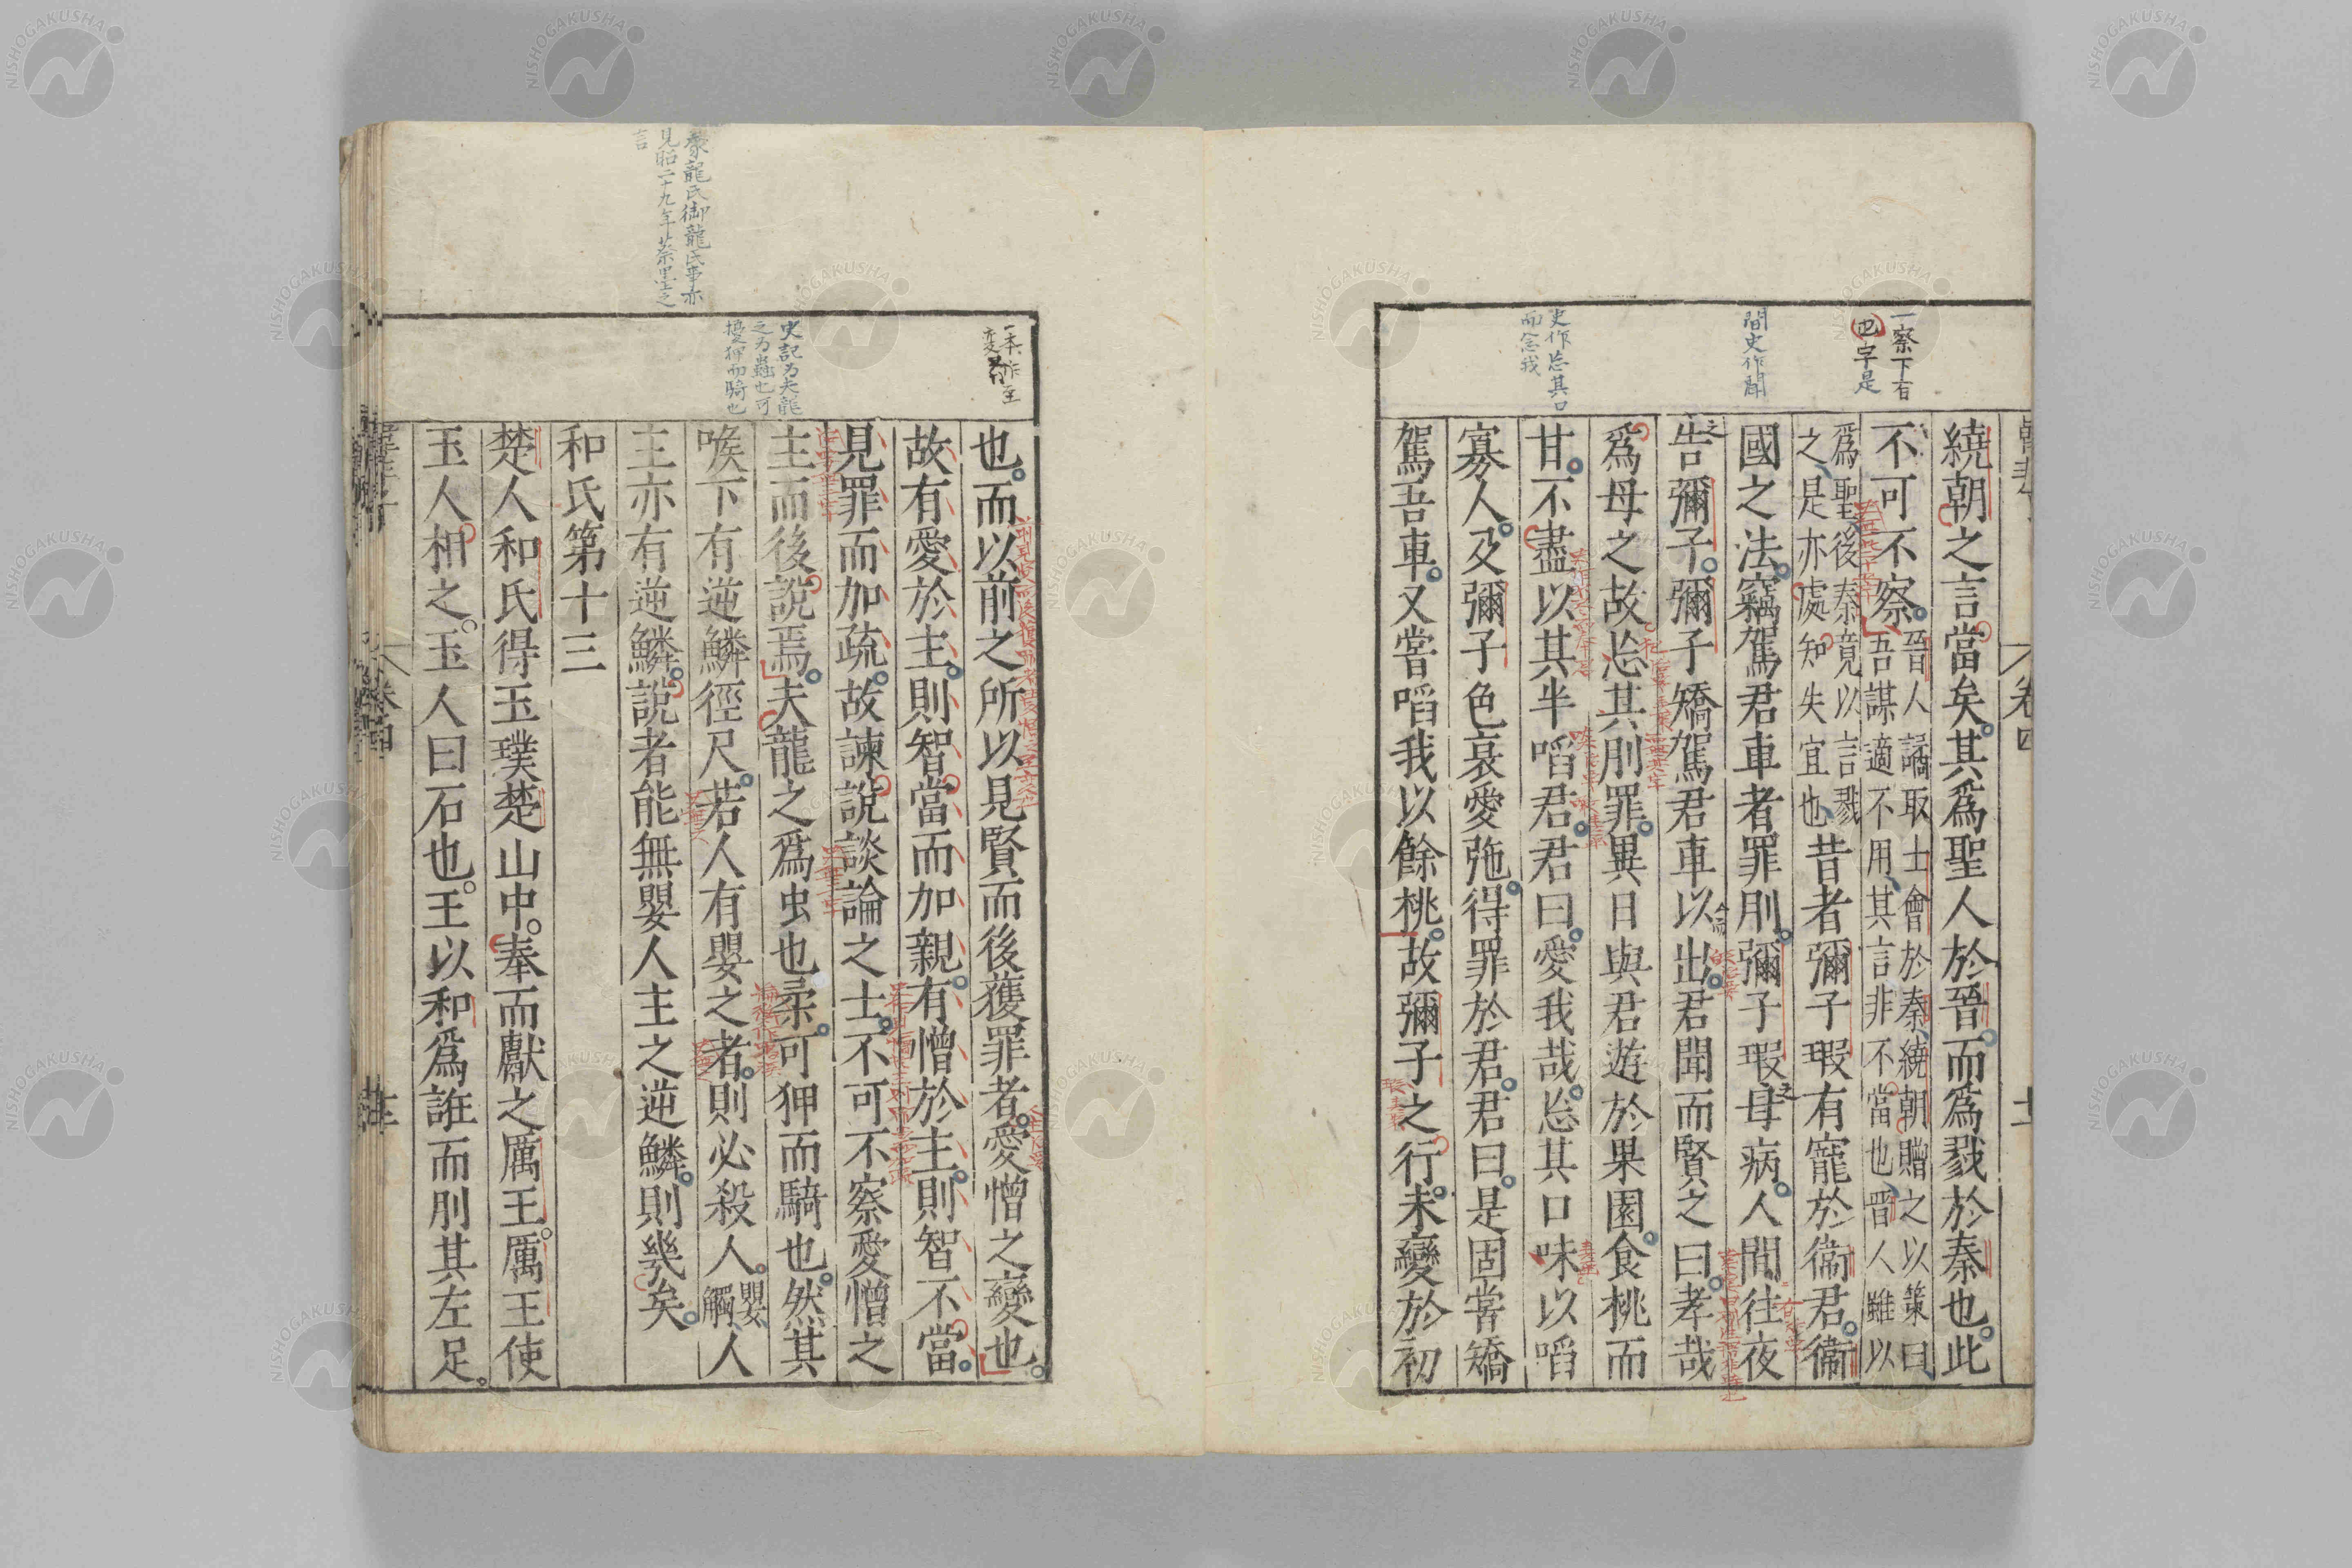 一察下有
四字是
間史作聞
史作忘其口
而念我
卷四
繞朝之言當矣。其爲聖人於晉。而爲戮於秦也。此
不可不察。
晉人譎取士會於秦、繞朝贈之以策曰、
吾謀適不用、其言非不當也、晉人雖以
爲聖、後秦竟以言戮
之、是亦處知失宜也、
昔者彌子瑕有寵於衞君。衞
國之法。竊駕君車者罪刖。彌子瑕母病。人間往夜
告彌子。彌子矯駕君車以出。君聞而賢之曰。孝哉
爲母之故忘其刖罪。異日與君遊於果園。食桃而
甘。不盡以其半啗君。君曰。愛我哉。忘其口味以啗
寡人。及彌子色衰愛弛。得罪於君。君曰。是固嘗矯
駕吾車。又嘗啗我以餘桃。故彌子之行。未變於初
豢龍氏御龍氏事亦
見昭二十九年蔡墨之
言
一本作至
変者
史記乃夫龍
之为蟲也可
擾狎而騎也
也。而以前之所以見賢而後獲罪者。愛憎之變也。
故有愛於主。則智當而加親。有憎於主。則智不當。
見罪而加疏。故諫說談論之士。不可不察愛憎之
主而後說焉。夫龍之爲虫也柔。可狎而騎也。然其
喉下有逆鱗徑尺。若人有嬰之者。則必殺人。
嬰、
觸、
人
主亦有逆鱗。說者能無嬰人主之逆鱗。則幾矣。
和氏第十三
楚人和氏得玉璞楚山中。奉而獻之厲王。厲王使
玉人相之。玉人曰石也。王以和爲誑而刖其左足。